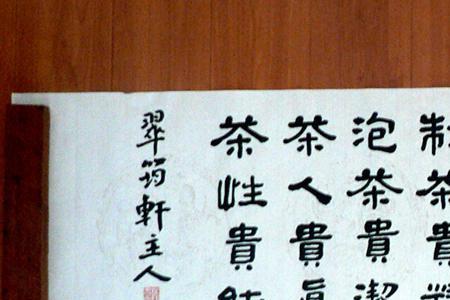 制茶貴
泡茶貴潔
茶人貴真
茶性貴純
翠筠軒主人